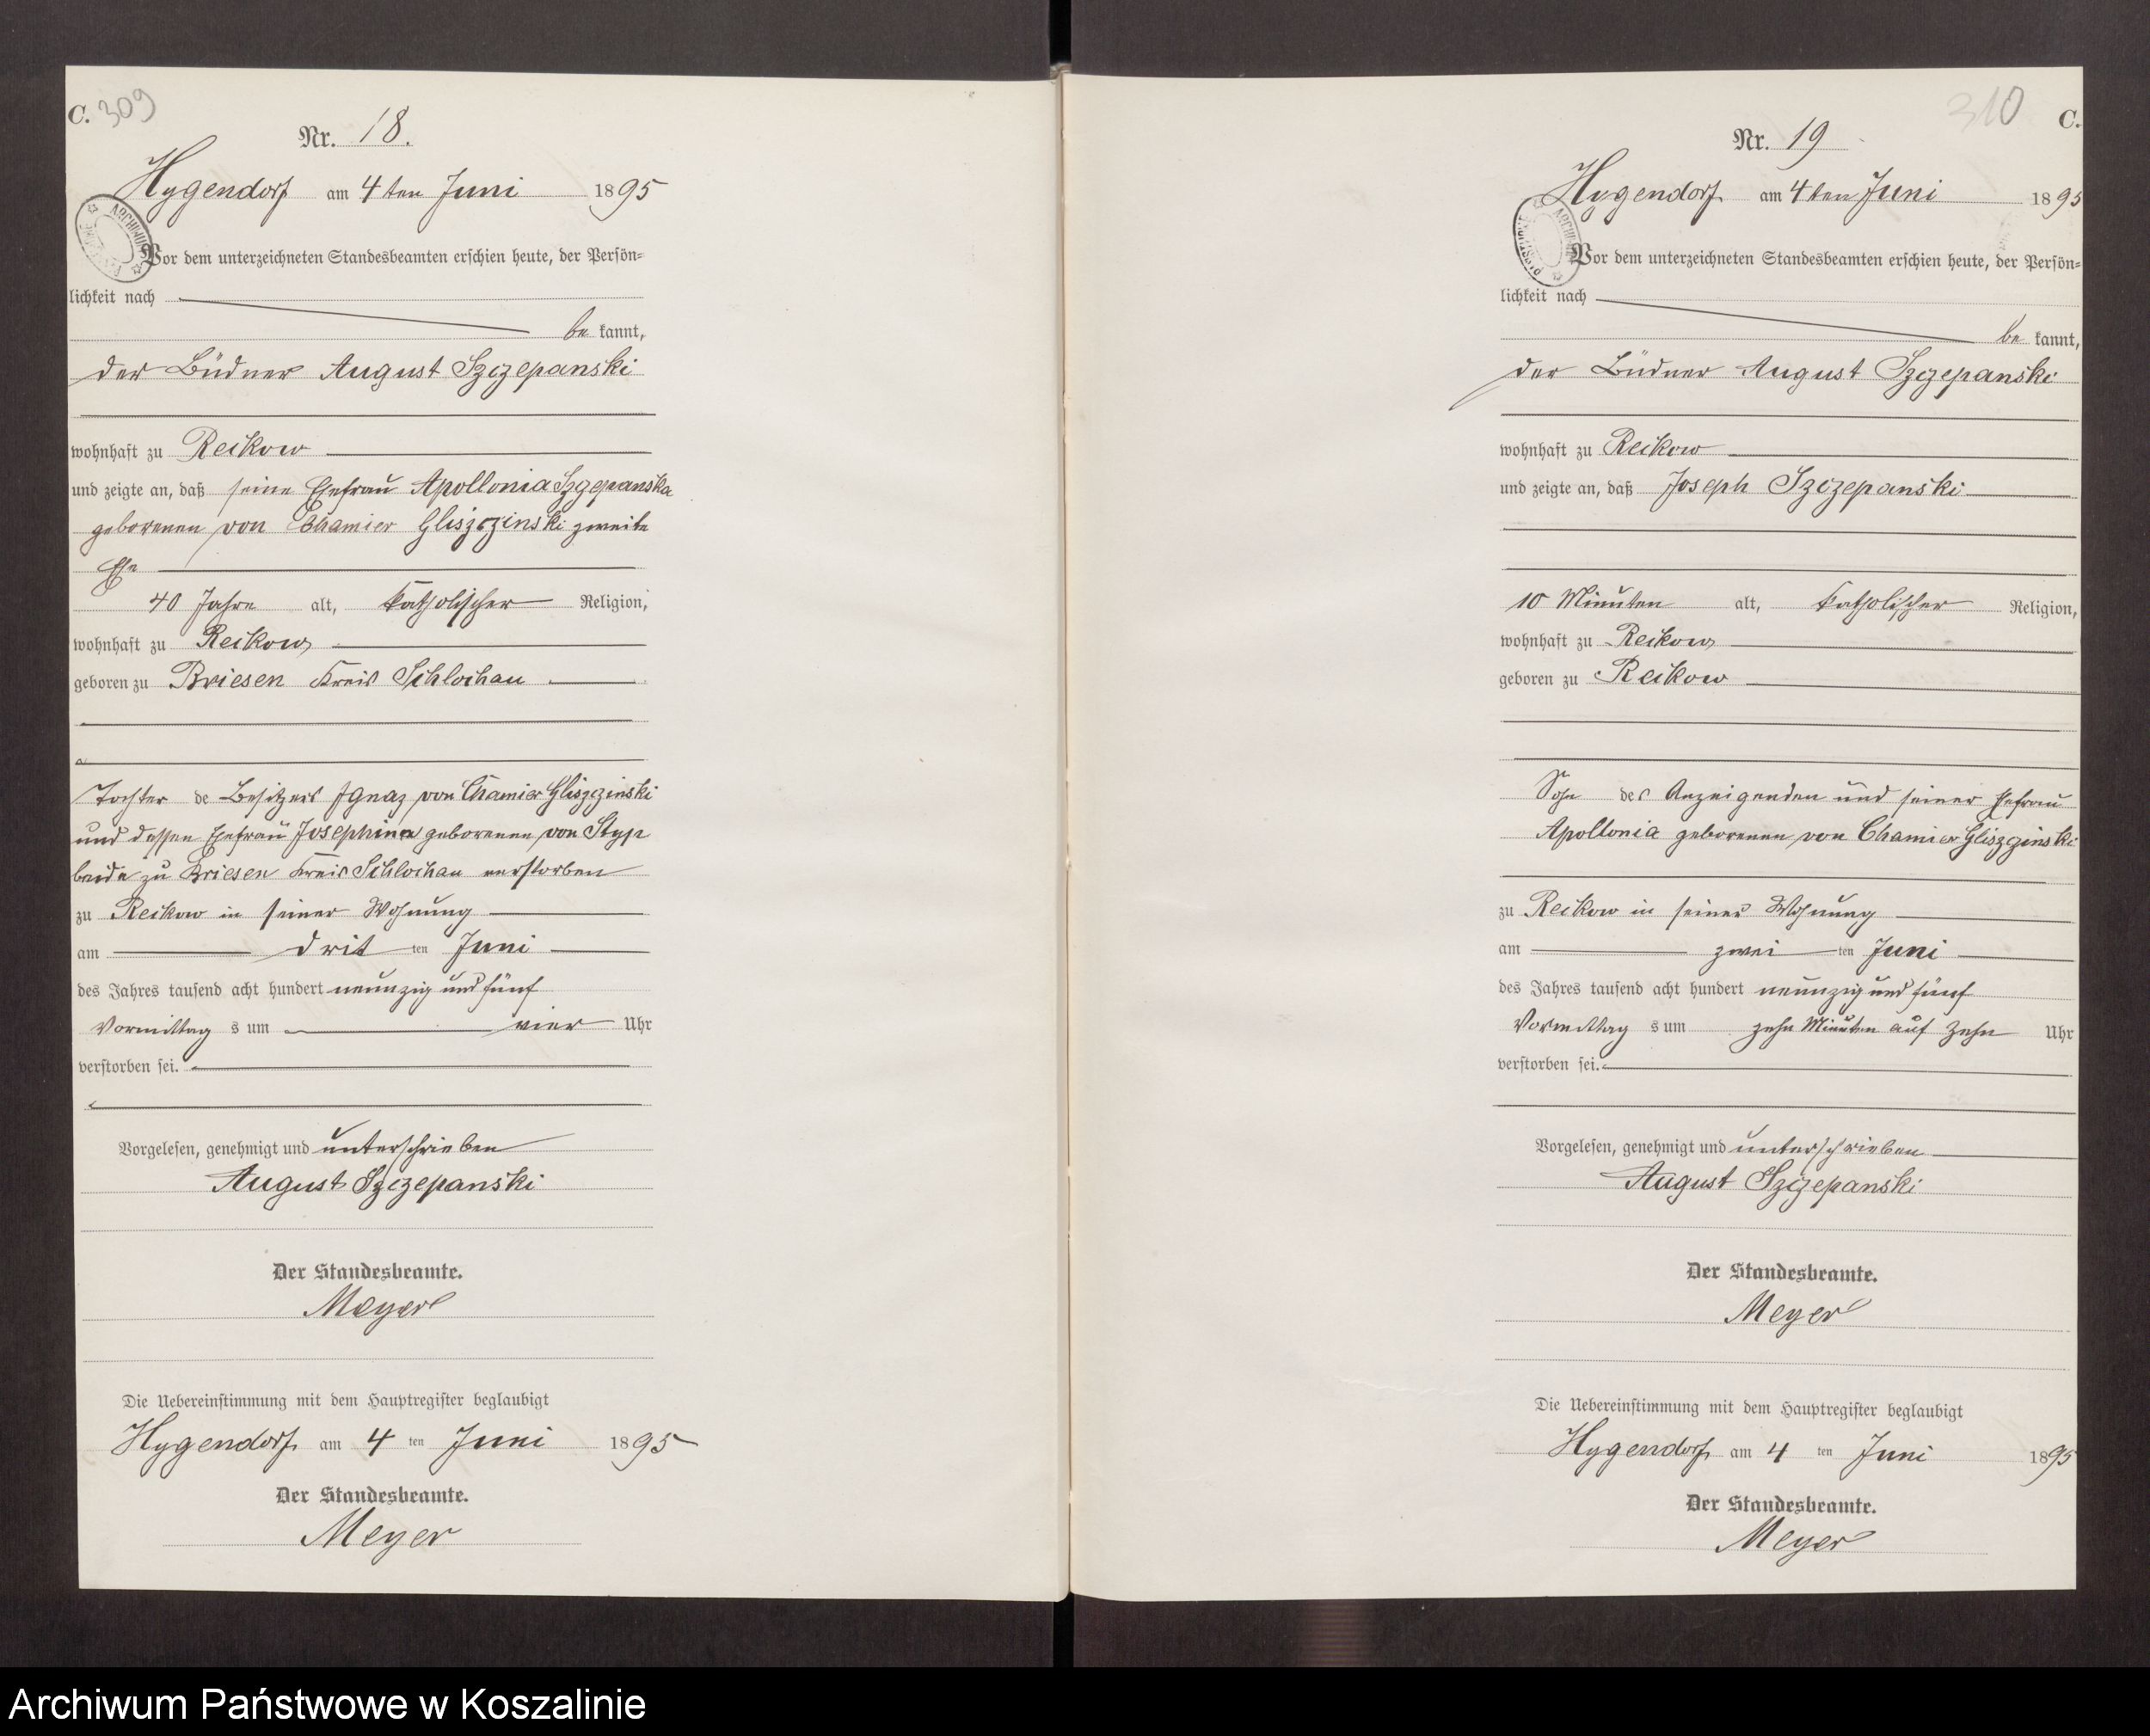 C. 309
Nr. 18.
Hygendorf am 4ten Juni 1895
Vor dem unterzeichneten Standesbeamten erschien heute, der Persön-
lichkeit nach
be kannt,
der Büdner August Szczepanski
wohnhaft zu Reikow
und zeigte an, daß seine Ehefrau Apollonia Szczepanska
geborenen von Chamier Gliszczinski zweite
Ehe
40 Jahre alt, katholischer Religion,
wohnhaft zu Reikow
geboren zu Briesen Kreis Schlochau
Tochter de Besitzers Ignaz von Chamier Gliszczinski
und dessen Ehefrau Josephine geborenen von Styp
beide zu Briesen Kreis Schlochau verstorben
zu Reikow in seiner Wohnung
am drit ten Juni
des Jahres tausend acht hundert neunzig und fünf
Vormittag s um vier Uhr
verstorben sei.
Vorgelesen, genehmigt und unterschrieben
August Szczepanski
Der Standesbeamte.
Meyer
Die Uebereinstimmung mit dem Hauptregister beglaubigt
Hygendorf am 4 ten Juni 1895
Der Standesbeamte.
Meyer
310 C.
Nr. 19
Hygendorf am 4ten Juni 1895
Vor dem unterzeichneten Standesbeamten erschien heute, der Persön-
lichkeit nach
be kannt,
der Büdner August Szczepanski
wohnhaft zu Reikow
und zeigte an, daß Joseph Szczepanski
10 Minuten alt, katholischer Religion,
wohnhaft zu Reikow
geboren zu Reikow
Sohn des Anzeigenden und seiner Ehefrau
Apollonia geborenen von Chamier Gliszczinski
zu Reikow in seiner Wohnung
am zwei ten Juni
des Jahres tausend acht hundert neunzig und fünf
Vormittag s um zehn Minuten auf zehn Uhr
verstorben sei.
Vorgelesen, genehmigt und unterschrieben
August Szczepanski
Der Standesbeamte.
Meyer
Die Uebereinstimmung mit dem Hauptregister beglaubigt
Hygendorf am 4 ten Juni 1895
Der Standesbeamte.
Meyer
Archiwum Państwowe w Koszalinie